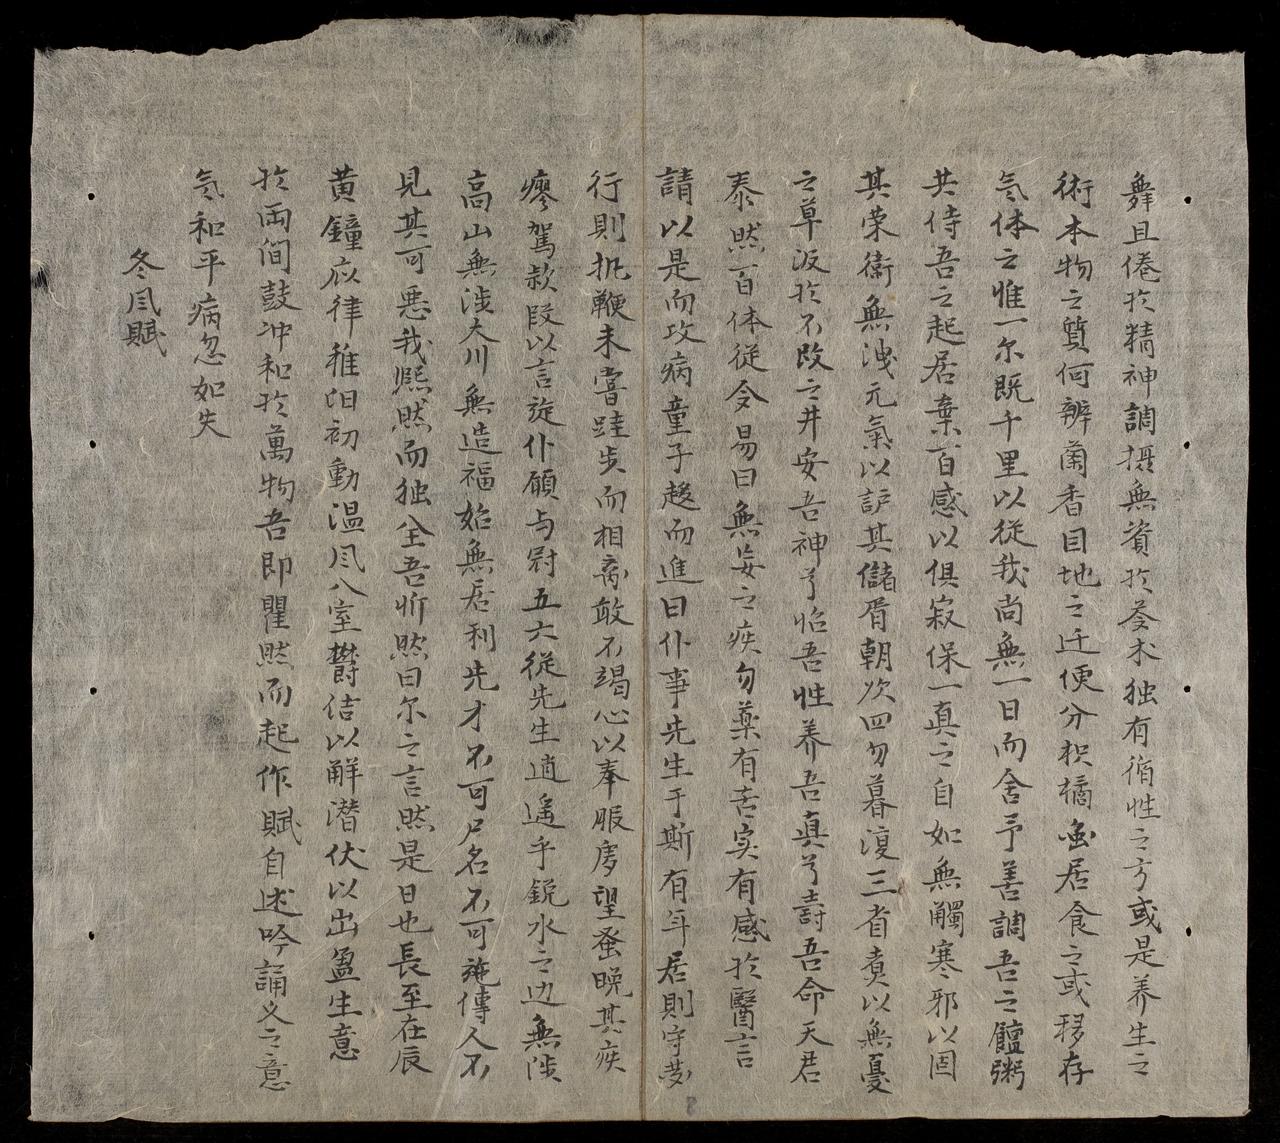 舞且倦於精神調摂無資於参朮独有循性之方或是养生之
術本物之質何辨蘭香目地之迁便分枳橘𡆮居食之或移存
气体之惟一尔既千里以從我尚無一日而舍予善調吾之饘粥
共侍吾之起居棄百感以俱寂保一真之自如無觸寒邪以固
其荣衛無洩元氣以護其儲胥朝次四勿暮復三省煮以無憂
之草汲於不改之井安吾神兮怡吾性养吾真兮壽吾命天君
泰然百体從令易曰無妄之疾勿藥有喜実有感於醫言
請以是而攻病童子趍而進曰仆事先生于斯有年居則守夢
行則執鞭未嘗跬步而相离敢不竭心以奉服虔望蚤晚其疾
瘳駕款段以言旋仆願与冠五六從先生逍遥乎鋭水之边無陟
高山無涉大川無造福始無居利先才不可尸名不可施傳人不
見其可悪我熙然而独全吾忻然曰尔之言然是日也長至在辰
黄鐘应律稚阳初動温風八室欝佶以解潜伏以出盈生意
於両间鼓冲和於萬物吾即瞿然而起作賦自述吟誦文之意
气和平病忽如失
冬風賦